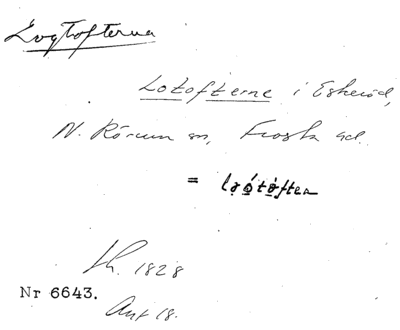 Logtofterna
Lotofterne i Eskeröd,
N. Rörum sn, Frosta hd.
=
Sk. 1828
Nr 6643.
Avt 18.